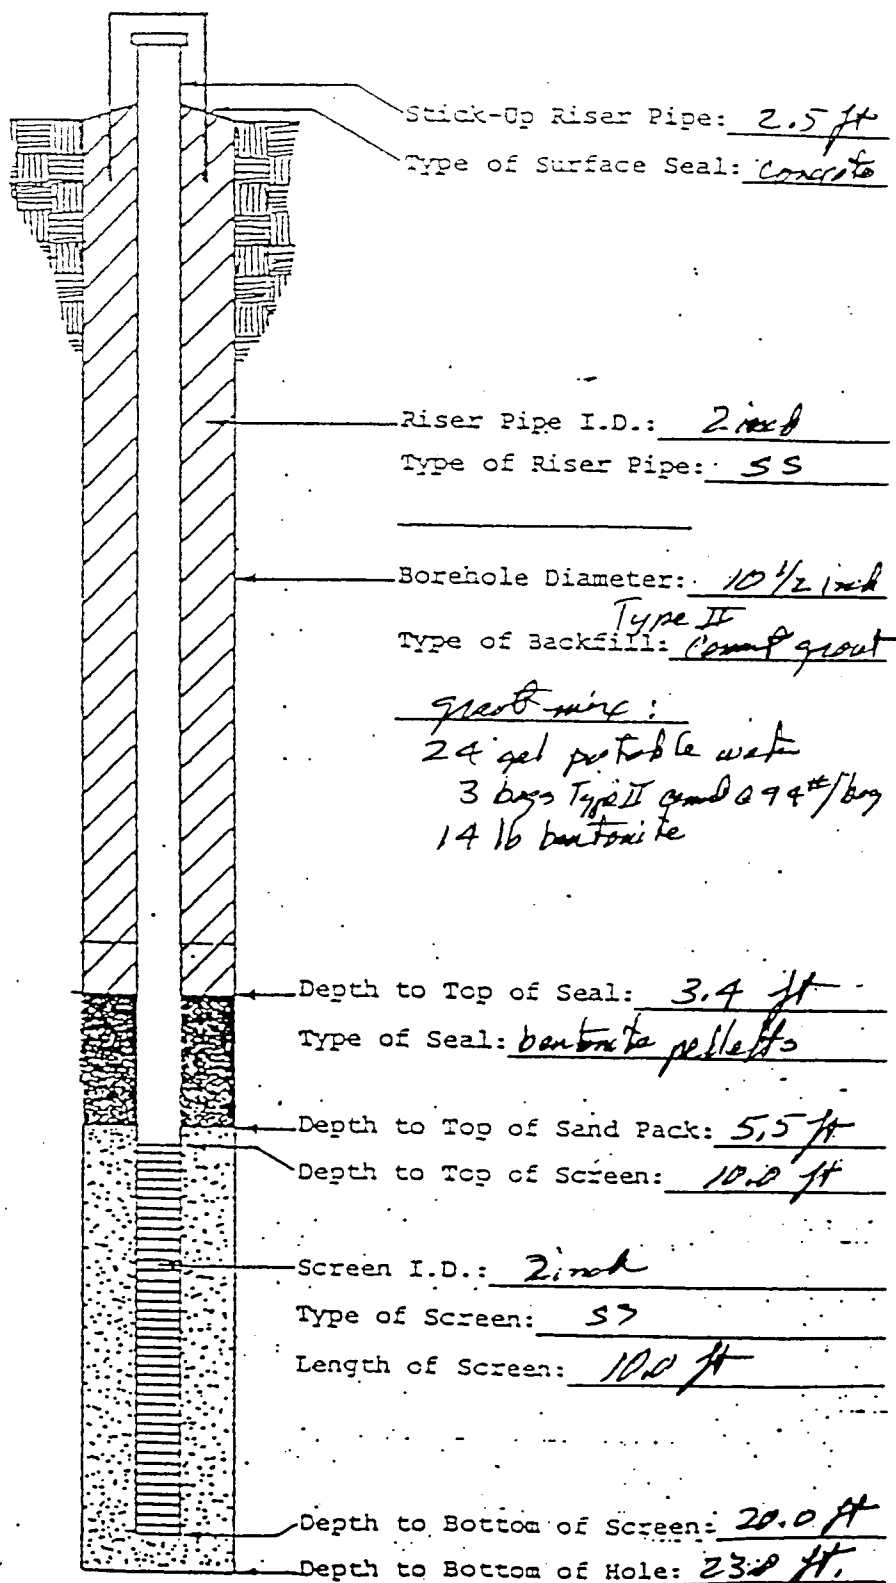 Stick-Up Riser Pipe: 2.5 ft
Type of Surface Seal: concrete
Riser Pipe I.D.: 2 inch
Type of Riser Pipe: SS
Borehole Diameter: 10 1/2 inch
Type II
Type of Backfill: Cement grout
grout mix:
24 gal potable water
3 bags Type II cement @ 94#/bag
14 lb bentonite
Depth to Top of Seal: 3.4 ft
Type of Seal: bentonite pelletts
Depth to Top of Sand Pack: 5.5 ft
Depth to Top of Screen: 10.0 ft
Screen I.D.: 2 inch
Type of Screen: SS
Length of Screen: 10.0 ft
Depth to Bottom of Screen: 20.0 ft
Depth to Bottom of Hole: 23.0 ft.